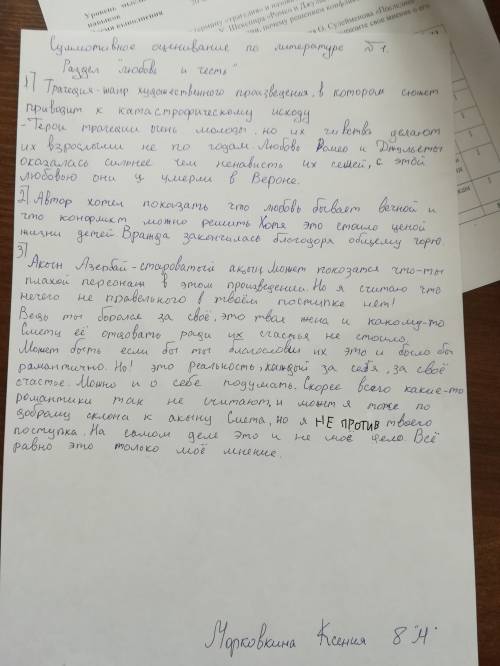 Уровень мысл
навыков
Время выполнения
Суммотивное оценивание по литературе №1.
Раздел "любовь и честь"
1) Трагедия-жанр художественного произведения, в котором сюжет
приводит к катастрофическому исходу
- Герои трагедии очень молоды, но их чувства делают
их взрослыми не по годам. Любовь Ромео и Джульеты
оказалась сильнее чем ненависть их семей, с этой
любовью они и умерли в Вероне.
2) Автор хотел показать что любовь бывает вечной и
что конфликт можно решить. Хотя это стоило ценой
жизни детей Вражда закончилась благодоря общему горю.
3)
Акын Азербай-староватый акын. Может показатся что-ты
плахой персонаж в этом произведении. Но я считаю что
нечего не правельного в твоём поступке нет!
Ведь ты боролся за своё, это твоя жена и какому-то
Смету её отдовать ради их счастья не стоило.
Может быть если бы ты благословил их это и было бы
романтично. Но! это реальность, каждый за себя, за своё
счастье. Можно и о себе подумать. Скорее всего какие-то
романтики так не считают, и может я тоже по
доброму склона к акыну Смета, но я НЕ ПРОТИВ твоего
поступка. На самом деле это и не моё дело. Всё
равно это только моё мнение.
Морковкина Ксения 8 "Н"